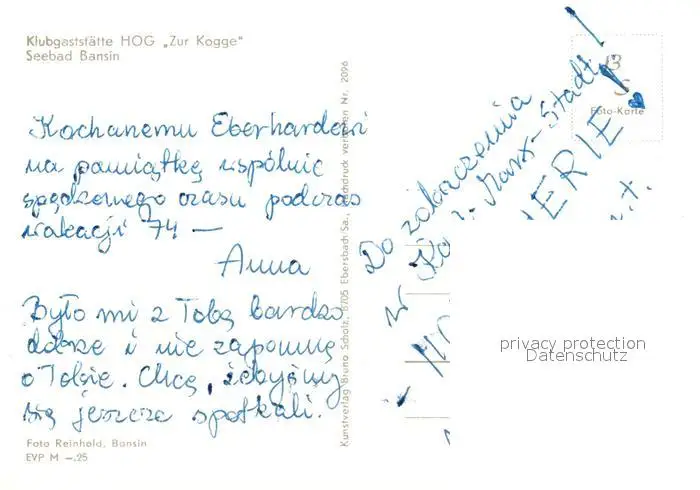 Klubgaststätte HOG „Zur Kogge"
Seebad Bansin
Kochanemu Eberhardowi
na pamiątkę wspólnie
spędzonego czasu podczas
wakacji 74 —
Anna
Było mi z Tobą bardzo
dobrze i nie zapomnę
o Tobie. Chcę, żebyśmy
się jeszcze spotkali.
Foto Reinhold, Bansin
EVP M –.25
Kunstverlag Bruno Scholz, 8705 Ebersbach Sa., Nachdruck verboten Nr. 2096
Foto-Karte
Do zobaczenia
w Ka Marx-Stadt!
ERIE
privacy protection
Datenschutz